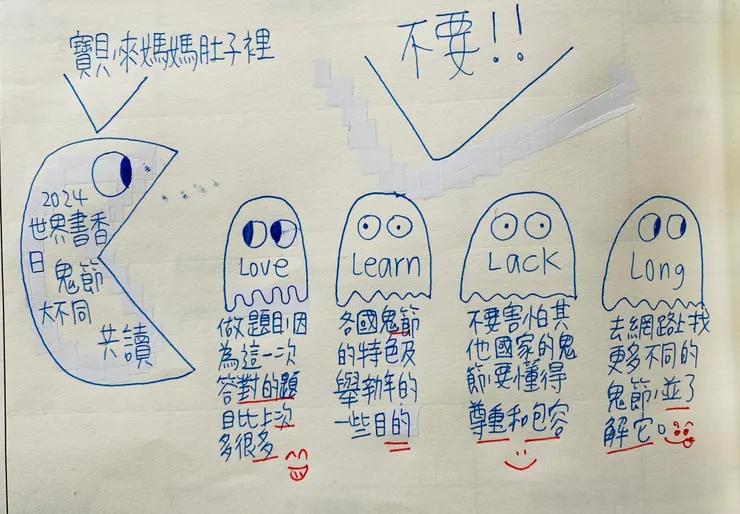 寶貝來媽媽肚子裡
不要!!
2024
世界書香
日
鬼節
大不同
共讀
Love
做題目,因
為這一次
答對的題
目比上次
多很多
Learn
各國鬼節
的特色及
舉辦年的
一些目的
Lack
不要害怕其
他國家的鬼
節,要懂得
尊重和包容
Long
去網路找
更多不同的
鬼節,並了
解它。